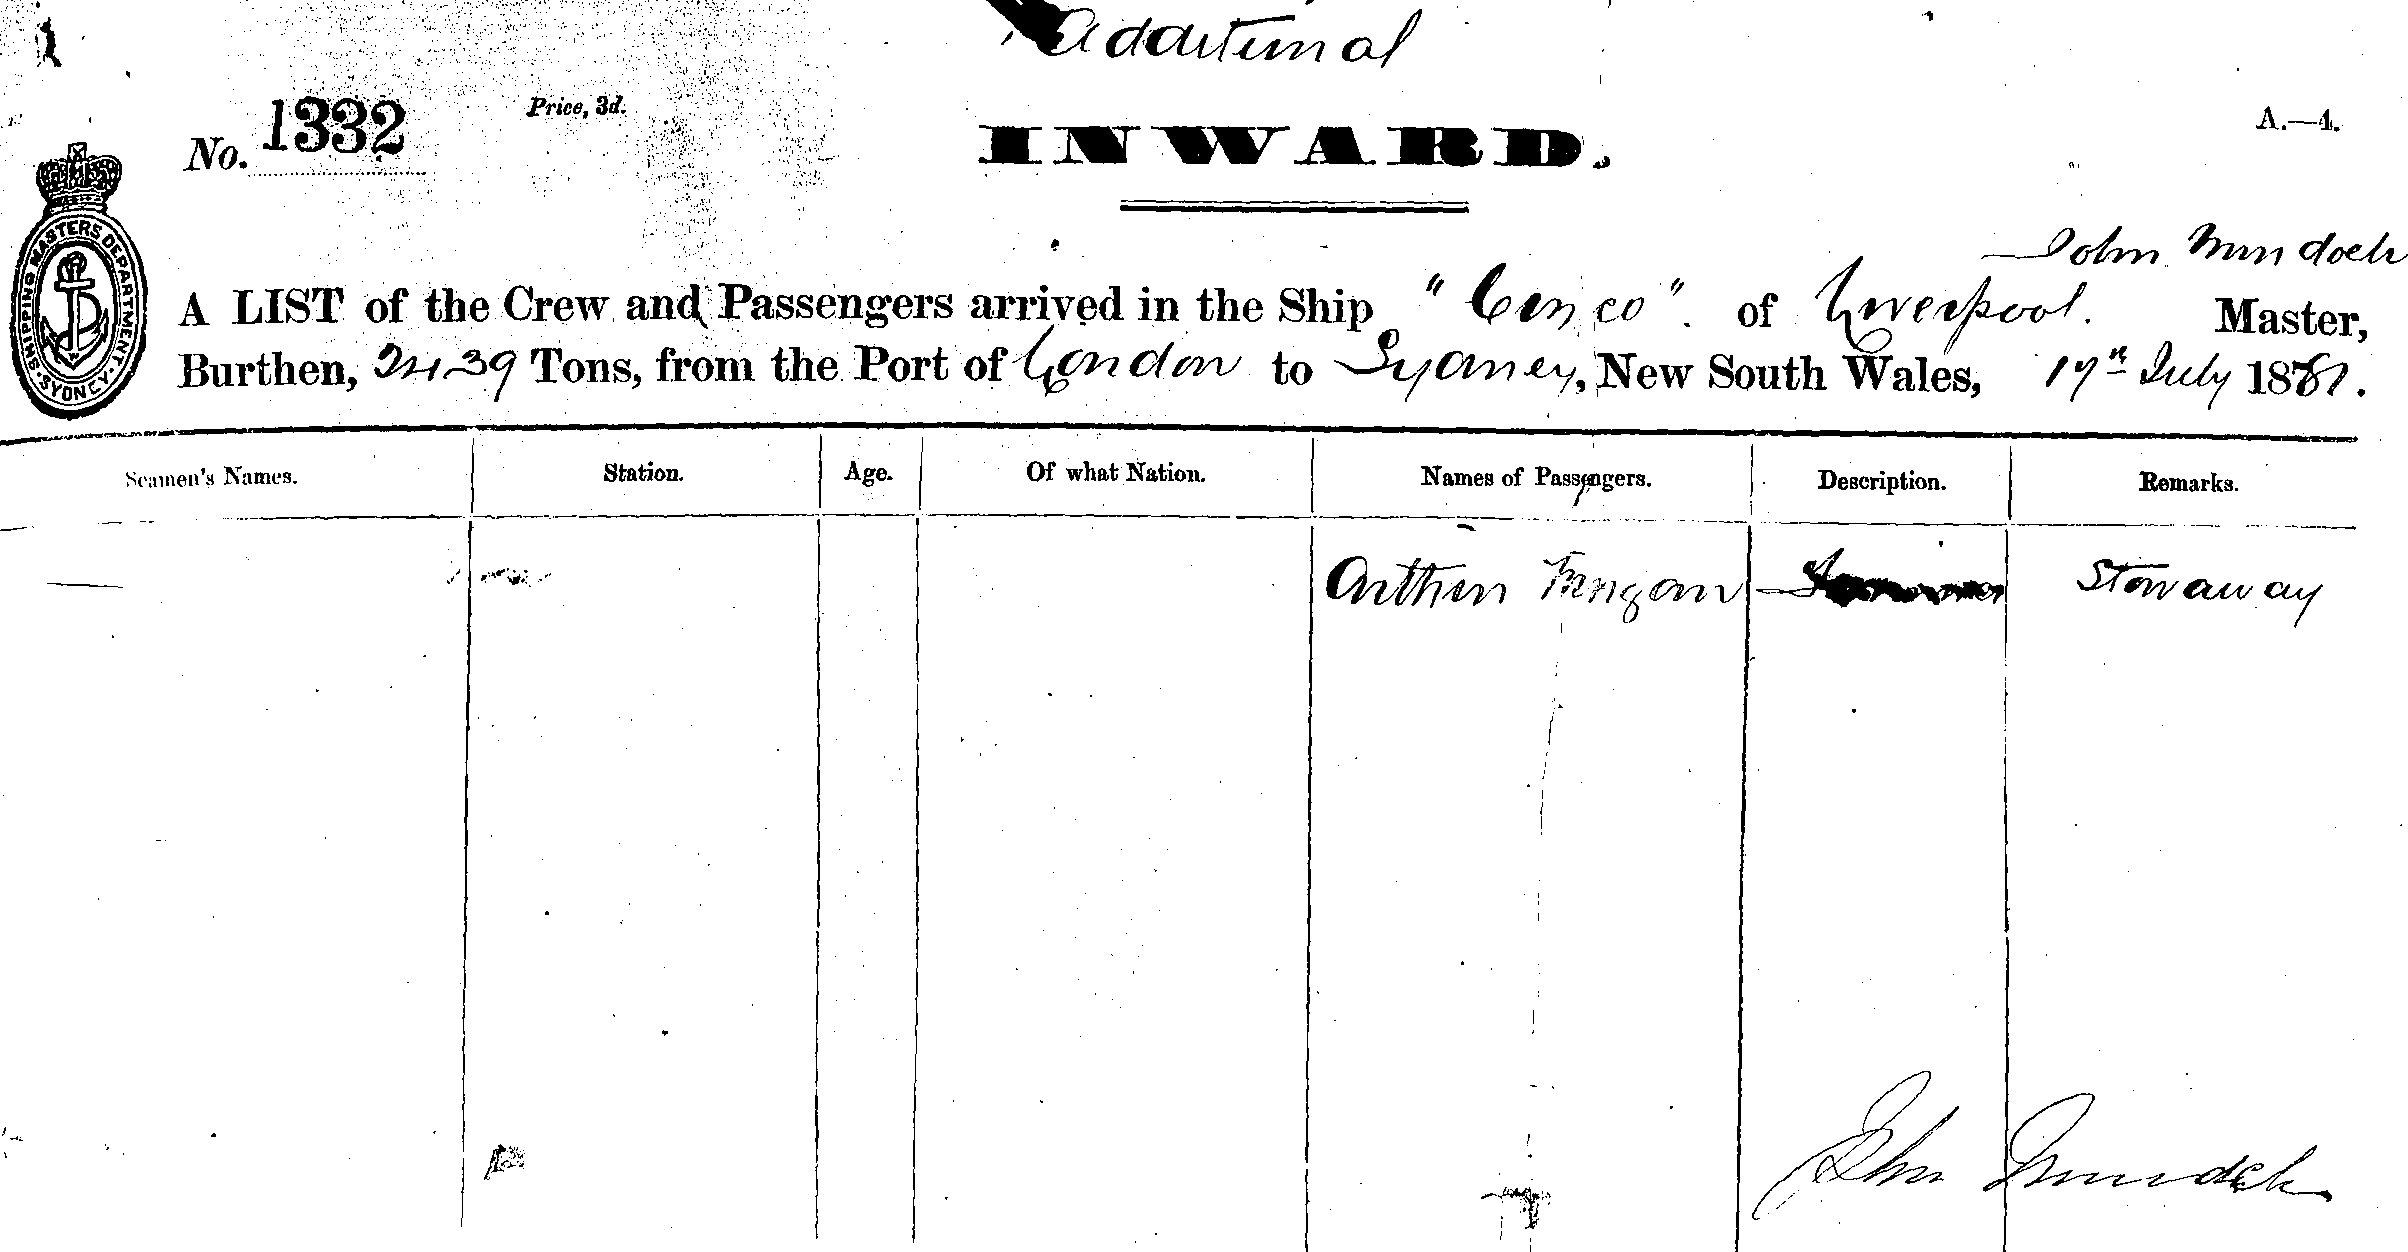 Additional
No. 1332 Price, 3d. INWARD. A.—4.
SHIPPING MASTERS DEPARTMENT. SYDNEY.
John Murdoch
A LIST of the Crew and Passengers arrived in the Ship " " of Liverpool. Master,
Burthen, 2439 Tons, from the Port of London to Sydney, New South Wales, 17th July 1881.
Seamen's Names. Station. Age. Of what Nation. Names of Passengers. Description. Remarks.
Arthur Stowaway
John Murdoch